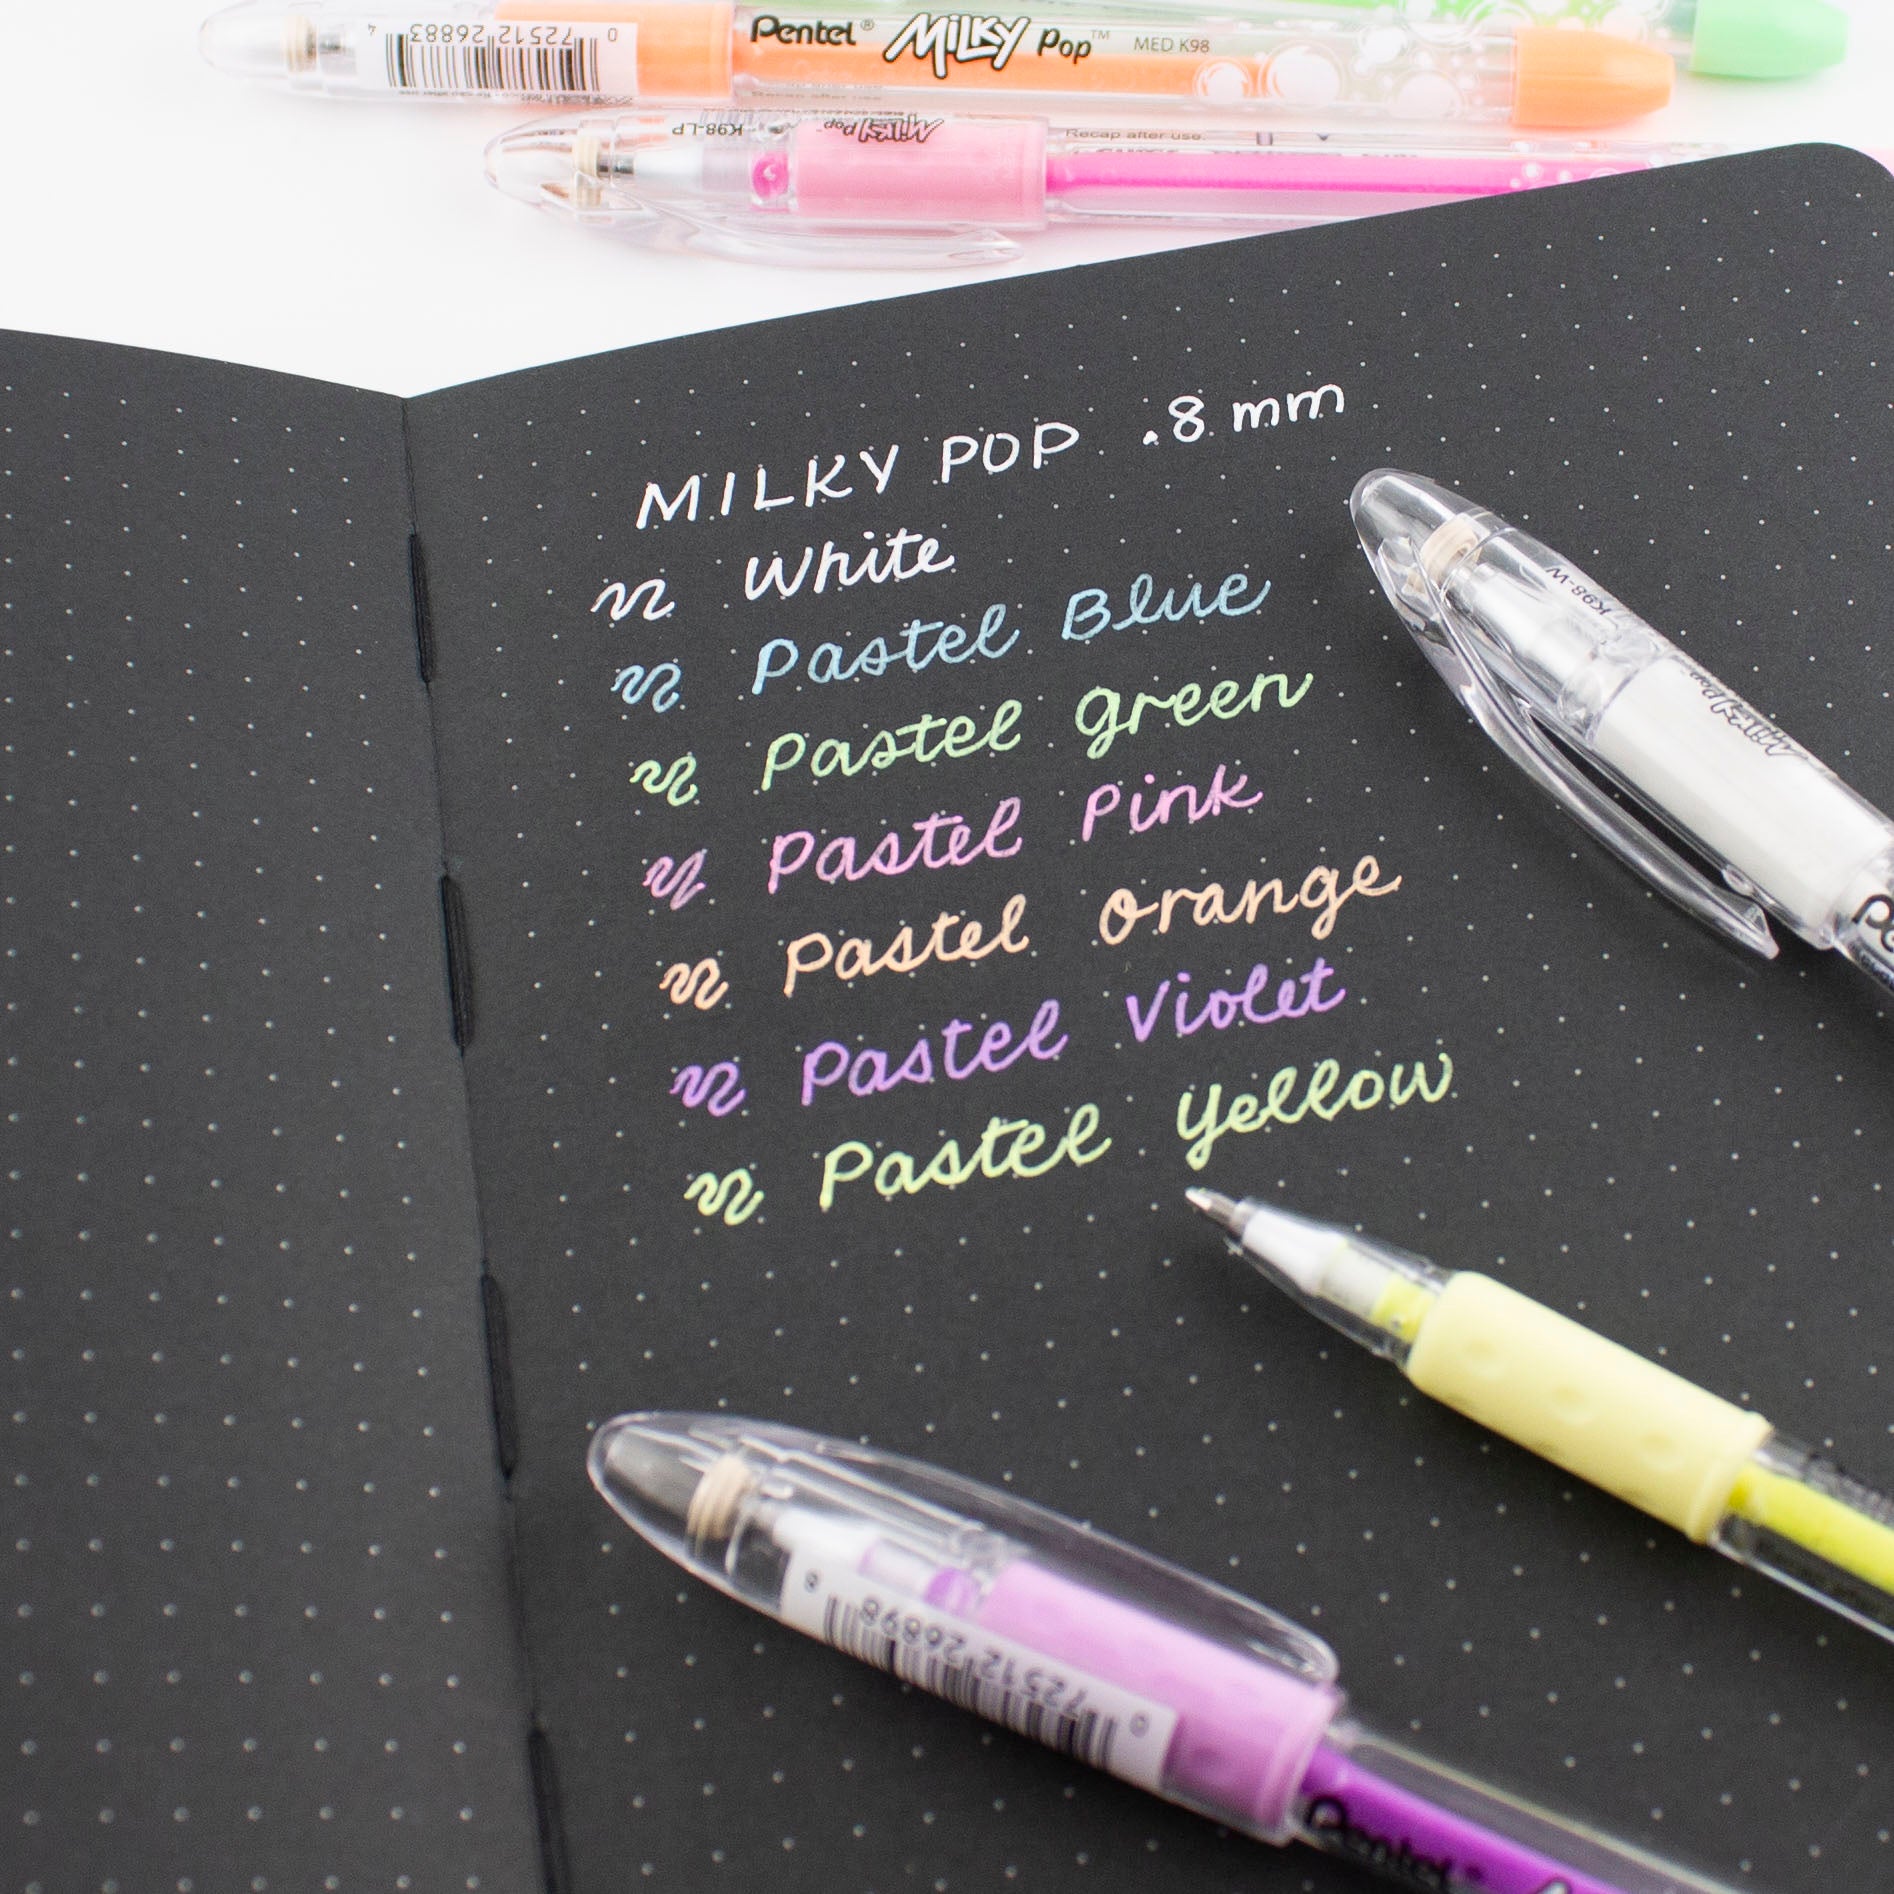 0 72512 26883 4
Pentel® MILKY POP™ MED K98
Recap after use.
K98-LP
MILKY POP™
Recap after use.
MILKY POP .8 mm
White
Pastel Blue
Pastel Green
Pastel Pink
Pastel Orange
Pastel Violet
Pastel Yellow
K98-W
MILKY POP
0 72512 26898 8
Pentel®